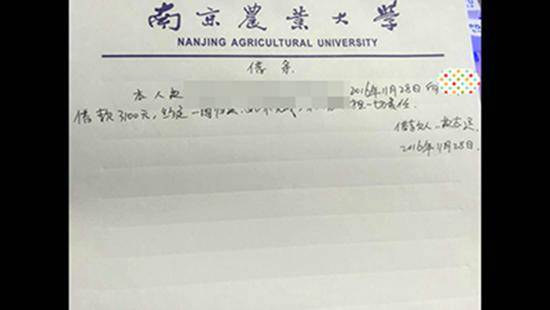 南京農業大學
NANJING AGRICULTURAL UNIVERSITY
借条
本人 2016年11月28日向
借款3100元，约定一周 担一切责任.
借款人
2016年11月28日.